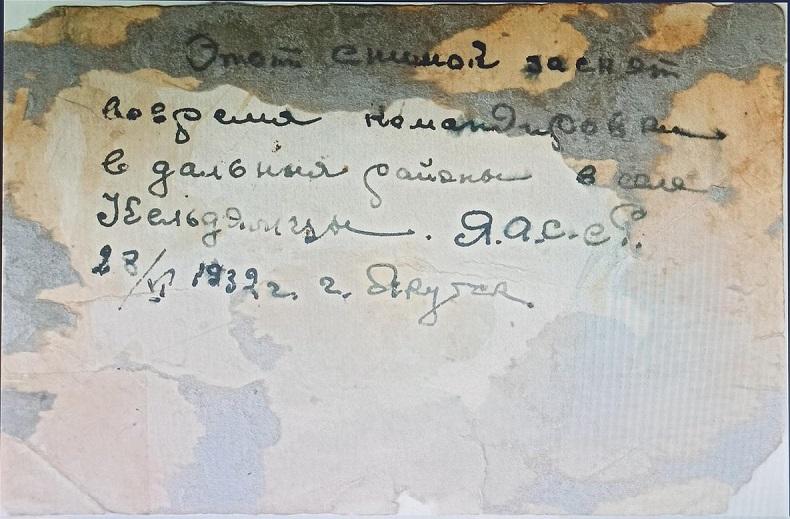 Этот снимок заснят
вовремя командирован
в дальния районы в селе
Кельдямцы. Я.А.С.С.Р.
28/VI 1932 г. г. Якутск.